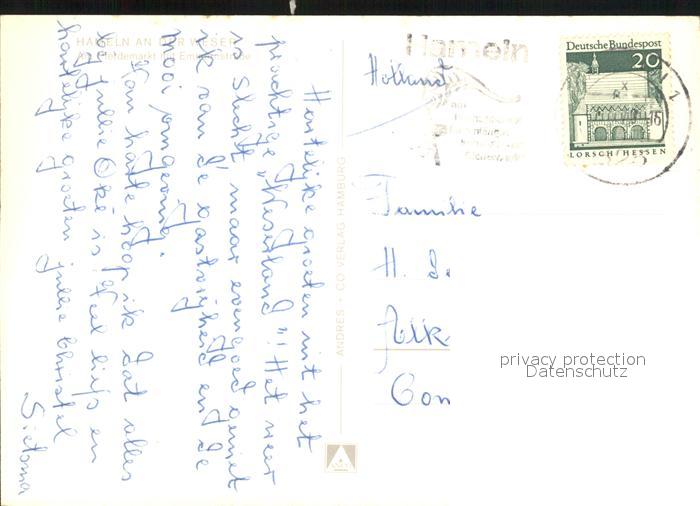 HAMELN AN DER WESER
Am Pferdemarkt mit
Hartelijke groeten uit het
prachtige "Weserland"!! Het weer
is slecht, maar evengoed geniet
ik van de gastvrijheid en de
mooi omgeving.
Van harte hoop ik dat alles
bij jullie Oké is! Veel liefs en
hartelijke groeten jullie Christel
Sietsma
ANDRES + CO VERLAG HAMBURG
Holland
Hameln
Deutsche Bundespost
20
LORSCH/HESSEN
Familie
H. d.
Con
privacy protection
Datenschutz